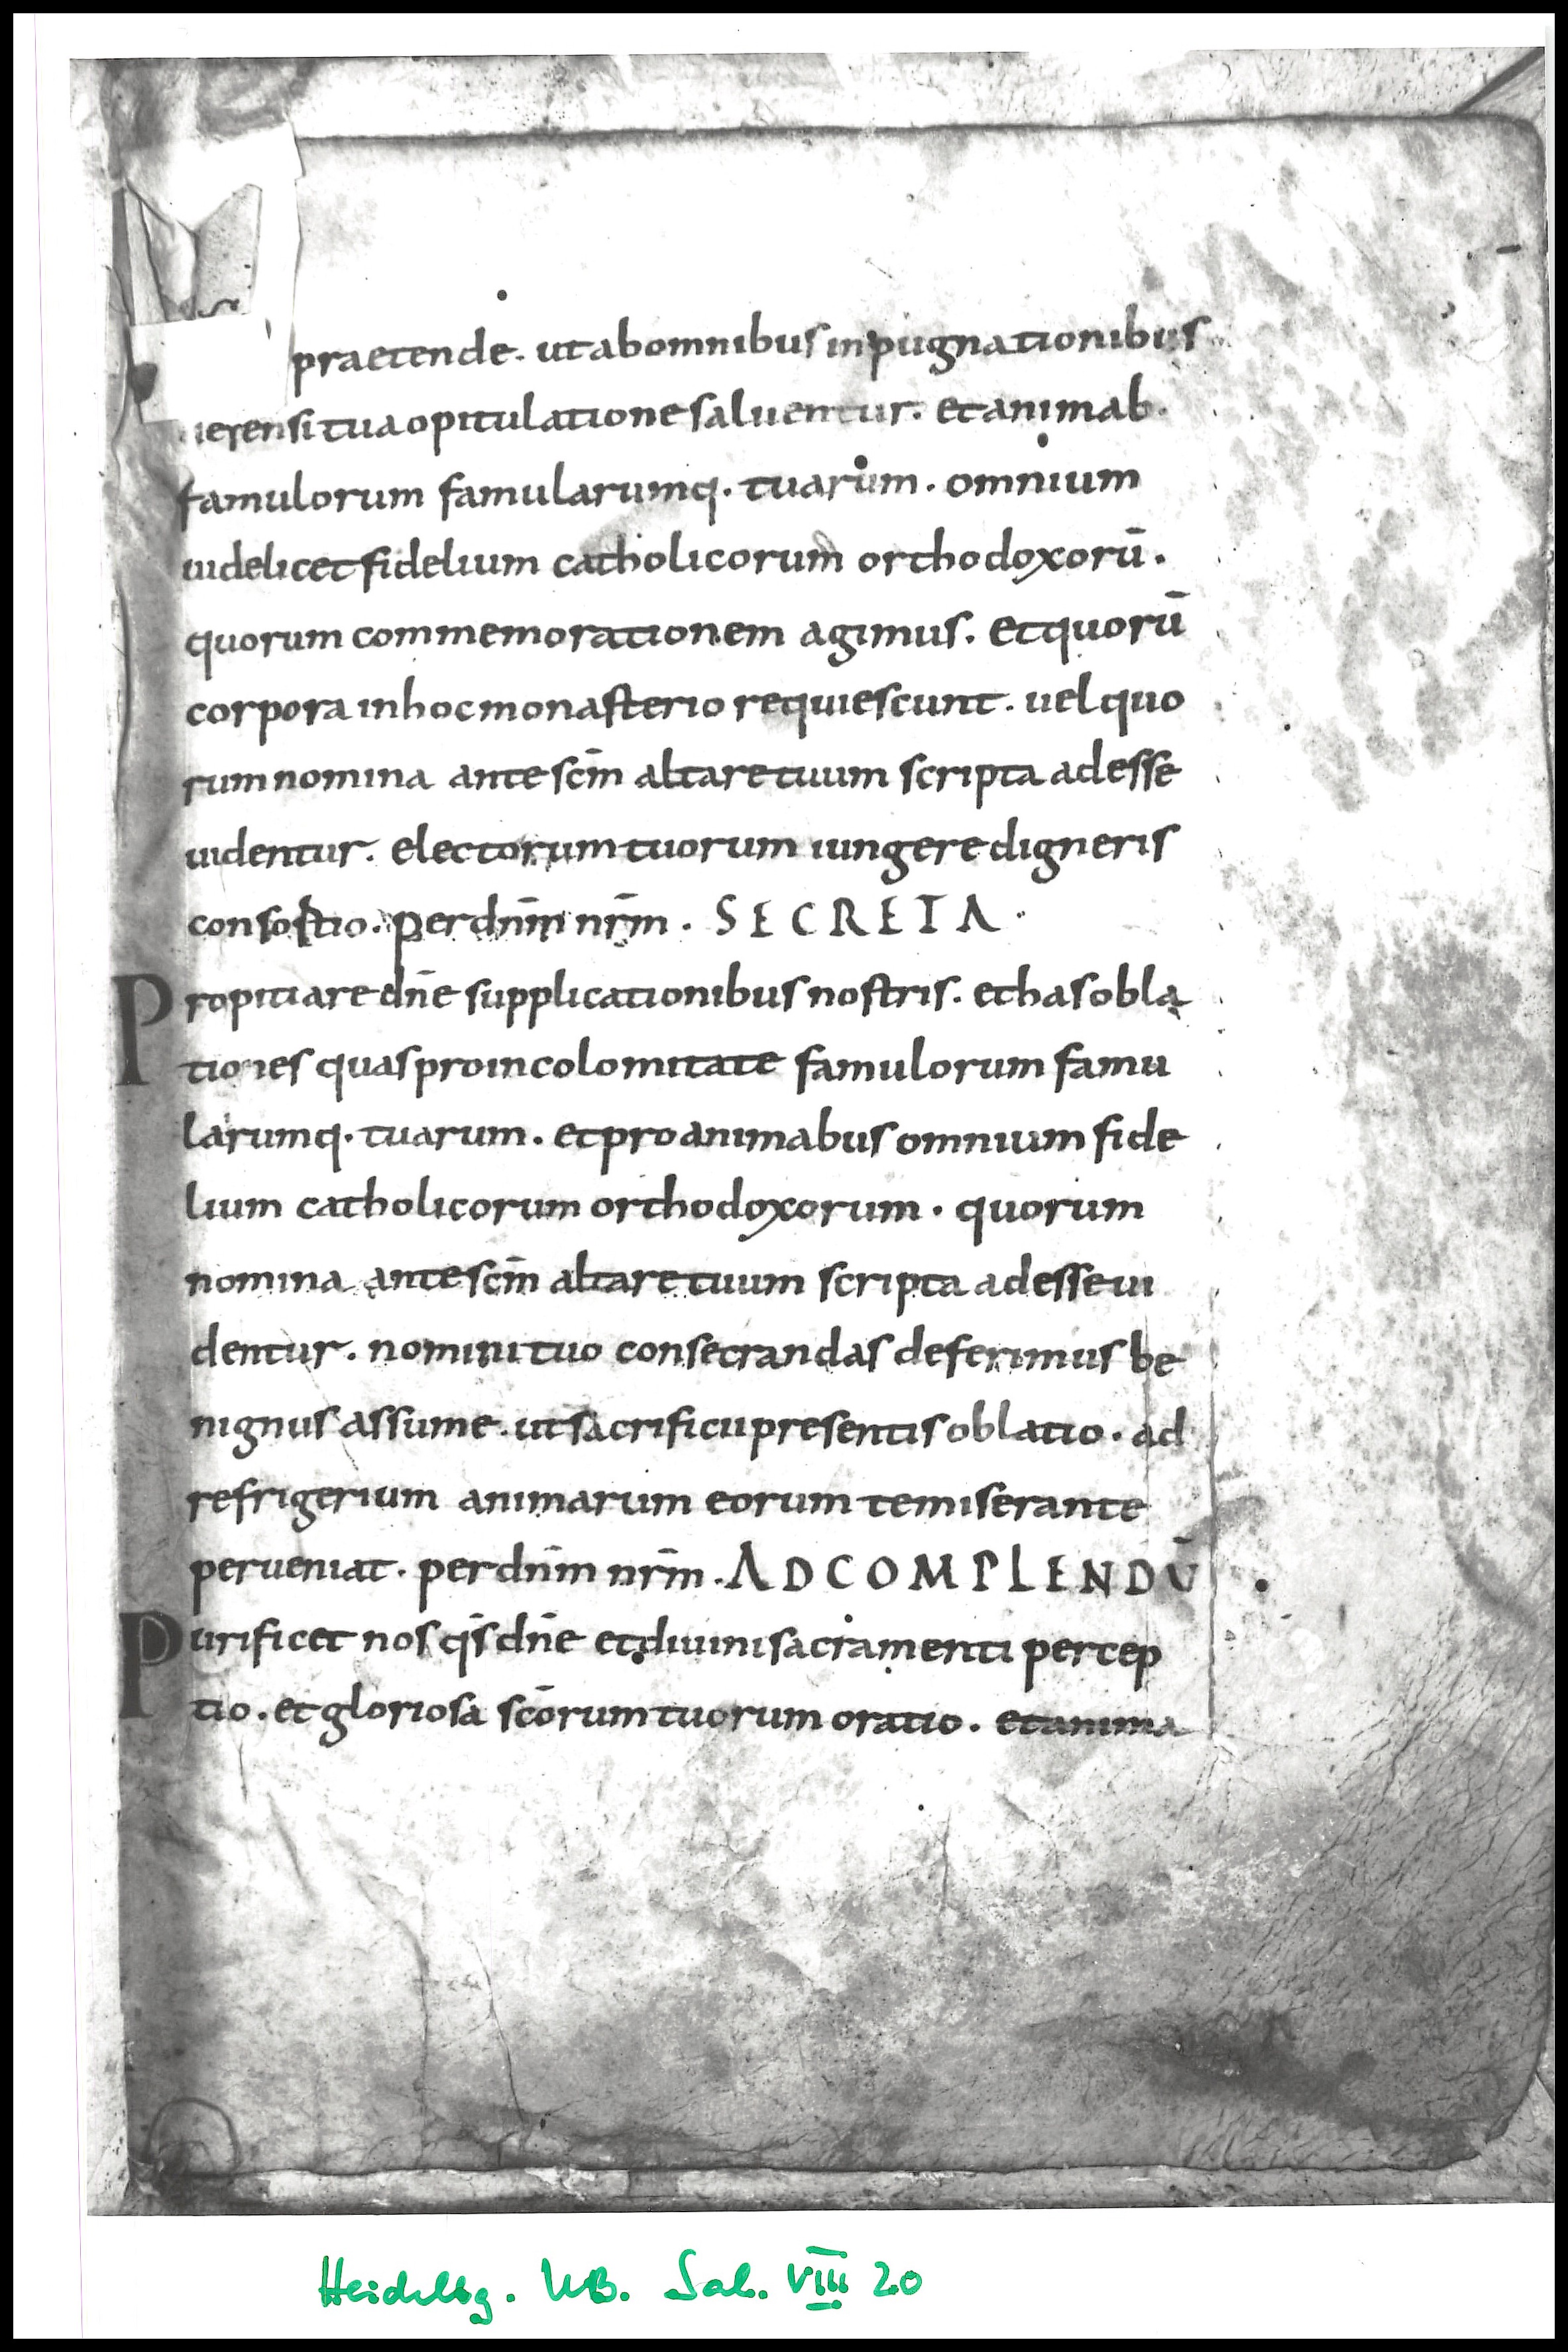 praetende. ut ab omnibus inpugnationibus
tua opitulatione saluentur. et animab.
famulorum famularumq. tuarum. omnium
uidelicet fidelium catholicorum orthodoxorū.
quorum commemorationem agimus. Et quorū
corpora in hoc monasterio requiescunt. uel quo
rum nomina ante scm̄ altare tuum scripta adesse
uidentur. electorum tuorum iungere digneris
consortio. per dnm̄ nrm̄. SECRETA.
Propitiare dn̄e supplicationibus nostris. et has obla
tiones quas pro incolomitate famulorum famu
larumq. tuarum. et pro animabus omnium fide
lium catholicorum orthodoxorum. quorum
nomina ante scm̄ altare tuum scripta adesse ui
dentur. nomini tuo consecrandas deferimus be
nignus assume. ut sacrificii presentis oblatio. ad
refrigerium animarum eorum te miserante
perueniat. per dnm̄ nrm̄. AD COMPLENDŪ
Purificet nos qs̄ dn̄e et diuini sacramenti percep
tio. et gloriosa scōrum tuorum oratio. et anima
Heidelbg. UB. Sal. VIII 20